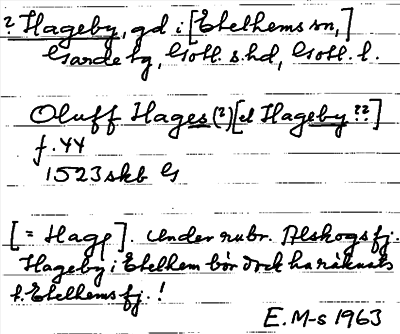 ? Hageby, gd i [Etelhems sn,]
Garde tg, Gotl. s. hd, Gotl. l.
Oluff Hages (?) [el Hageby ??]
f. 44
1523 skb G
[= Hage]. Under rubr. Alskogs fj.
Hageby i Etelhem bör dock ha räknats
t. Etelhems fj. !
E. M-s 1963